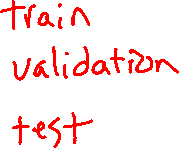 train
validation
test